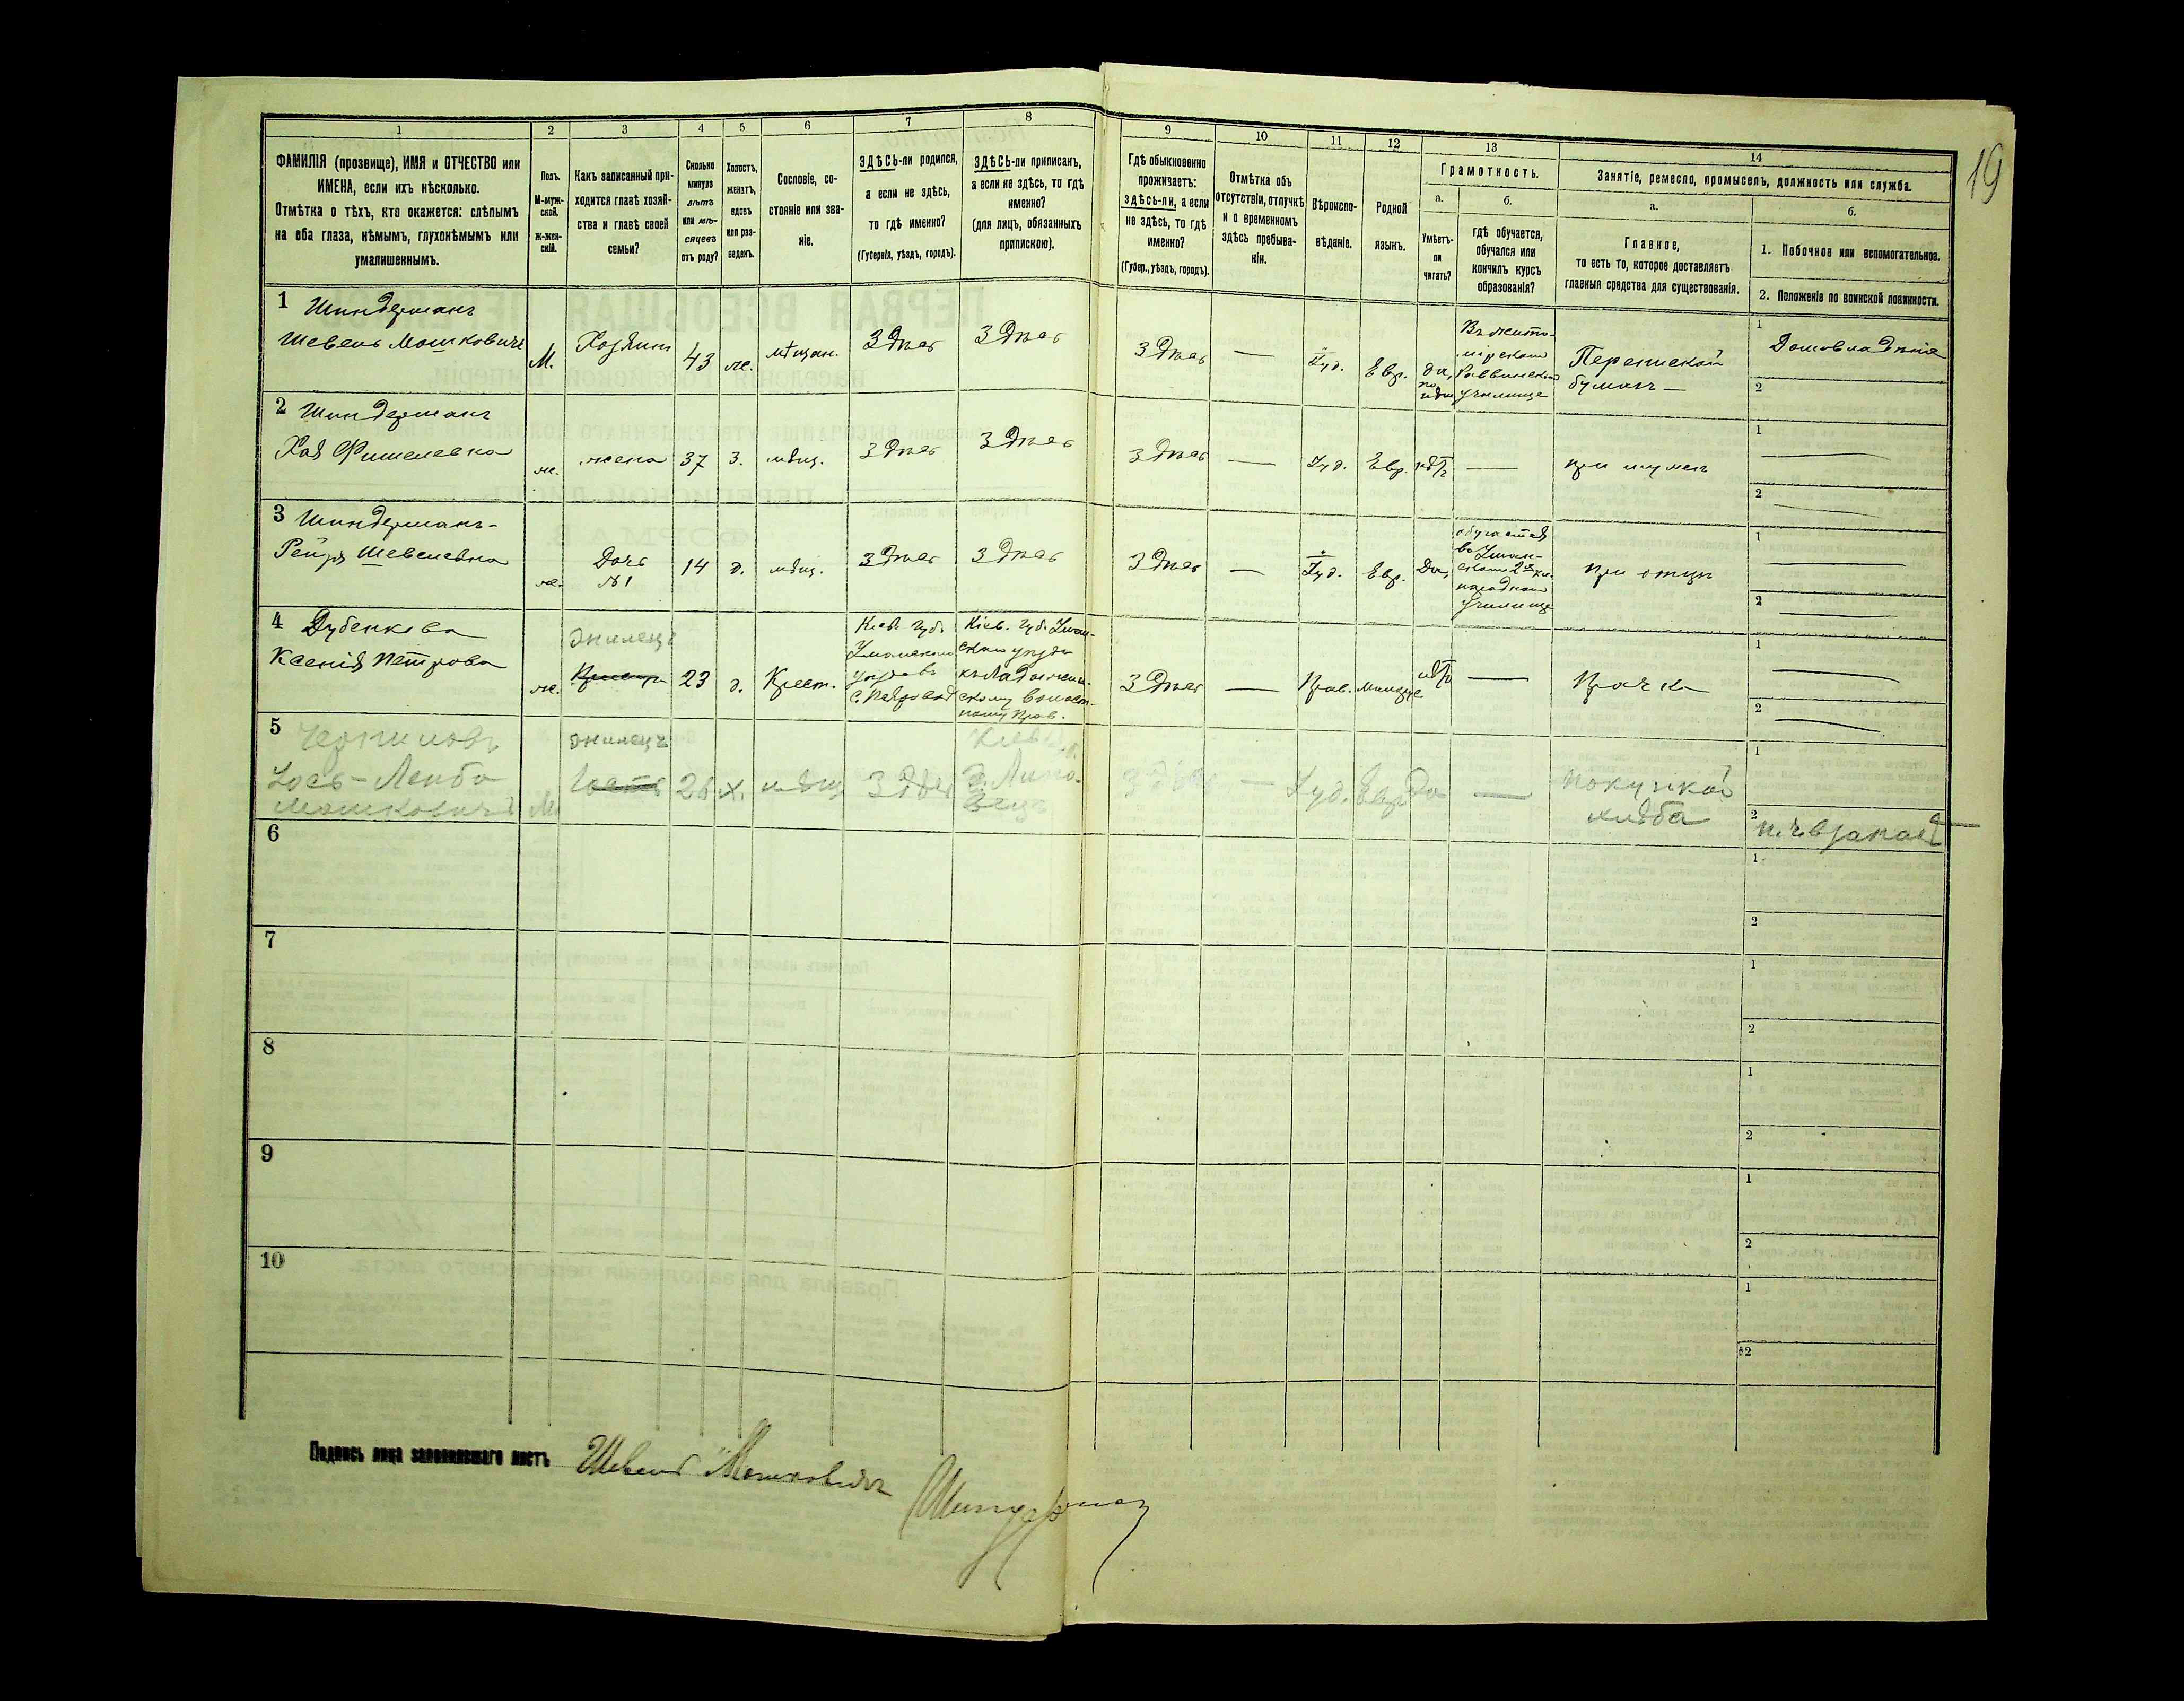 19
1 2 3 4 5 6 7 8 9 10 11 12 13 14
ФАМИЛІЯ (прозвище), ИМЯ и ОТЧЕСТВО или
ИМЕНА, если ихъ нѣсколько.
Отмѣтка о тѣхъ, кто окажется: слѣпымъ
на оба глаза, нѣмымъ, глухонѣмымъ или
умалишеннымъ.
Полъ.
М-муж-
ской.
ж-жен-
скій.
Какъ записанный при-
ходится главѣ хозяй-
ства и главѣ своей
семьи?
Сколько
минуло
лѣтъ
или мѣ-
сяцевъ
отъ роду?
Холостъ,
женатъ,
вдовъ
или раз-
веденъ.
Сословіе, со-
стояніе или зва-
ніе.
ЗДѢСЬ-ли родился,
а если не здѣсь,
то гдѣ именно?
(Губернія, уѣздъ, городъ).
ЗДѢСЬ-ли приписанъ,
а если не здѣсь, то гдѣ
именно?
(для лицъ, обязанныхъ
припискою).
Гдѣ обыкновенно
проживаетъ:
здѣсь-ли, а если
не здѣсь, то гдѣ
именно?
(Губер., уѣздъ, городъ).
Отмѣтка объ
отсутствіи, отлучкѣ
и о временномъ
здѣсь пребыва-
ніи.
Вѣроиспо-
вѣданіе.
Родной
языкъ.
Грамотность.
а.
Умѣетъ-
ли
читать?
б.
гдѣ обучается,
обучался или
кончилъ курсъ
образованія?
Занятіе, ремесло, промыселъ, должность или служба.
а.
Главное,
то есть то, которое доставляетъ
главныя средства для существованія.
б.
1. Побочное или вспомогательное.
2. Положеніе по воинской повинности.
1 Шиндерманъ
Шевель Мошковичъ
М.
Хозяинъ
43
же.
мѣщан.
Здѣсь
Здѣсь
Здѣсь
—
Іуд.
Евр.
да,
по
Въ жито-
мірскомъ
Раввинском
училище
Перепиской
бумагъ —
1
Домовладѣніе
2
2 Шиндерманъ
Хая Фишелевна
же.
жена
37
З.
мѣщ.
Здѣсь
Здѣсь
Здѣсь
—
Іуд.
Евр.
нѣтъ
—
при мужѣ
1
2
3 Шиндерманъ-
Рейзя Шевелевна
же.
Дочь
№ 1
14
д.
мѣщ.
Здѣсь
Здѣсь
Здѣсь
—
Іуд.
Евр.
Да,
обучается
въ Уман-
скомъ 2х кл.
народномъ
училище
при отцѣ
1
2
4 Дубенкова
Ксенія Петрова
же.
жилецъ
23
д.
Крест.
Кіев. губ.
Уманскаго
уѣзда въ
Кіев. губ. Уман-
скаго уѣзда
къ Ладыжин-
скому волост-
ному Прав.
Здѣсь
—
Прав.
нѣтъ
—
Прачка
1
2
5
жилецъ
Іось-Лейба
Мошковичъ
М
Гость
26
х.
мѣщ
Здѣсь
Кіев. г.
г. Липо-
вецъ
Здѣсь
—
Іуд.
Евр
Да
—
покупкой
хлѣба
1
2
6
1
2
7
1
2
8
1
2
9
1
2
10
1
2
Подпись лица заполнившаго листъ Шевель Мошковичъ
Шиндерман